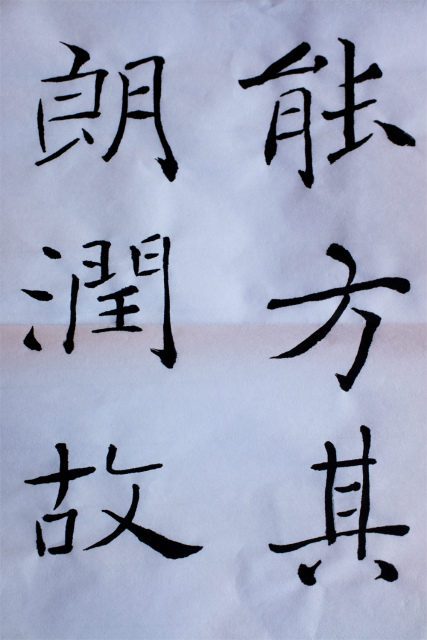 能方其
朗潤故